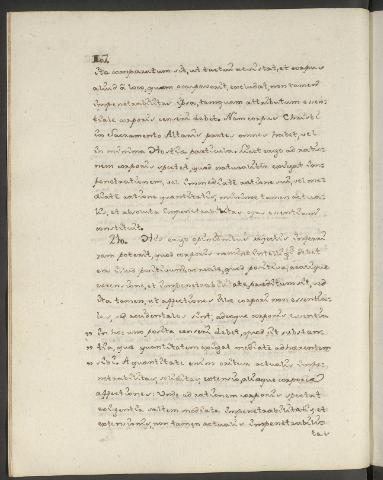 ita comparatum sit, ut tactui resistat, et corpus
aliud a loco, quem occupaverit, excludat, non tamen
impenetrabilitas ipsa, tamquam attributum essen
tiale corporis censeri debet. Nam corpus Christi
in Sacramento Altaris partes omnes habet, vel
in minima Hostiae particula. Licet ergo ad ratio
nem corporis spectet, quod naturaliter exigat im
penetrationem, vel immediate ratione sui, vel me
diate ratione quantitatis, minime tamen actua
lis, et absoluta impenetrabilitas ejus essentiam
constituit.
210. His ergo opinionibus rejectis
poterit, quod corporis nomine intelligi debet
ens positiva,
et impenetrabilitate, praeditum sit,
ita tamen, ut affectiones illae corpori non essentia
les, sed accidentales sint, adeoque corporis essentia
in hoc uno posita censeri debet, quod sit substan
tia, quae quantitatem exigat mediate adhaerentem
sibi. A quantitate enim oritur actualis impe
netrabilitas, soliditas, extensio, aliaeque corporis
affectiones. Unde ad rationem corporis spectat
exigentia saltem mediata impenetrabilitatis, et
extensionis, non tamen actualis impenetrabilitas
tas